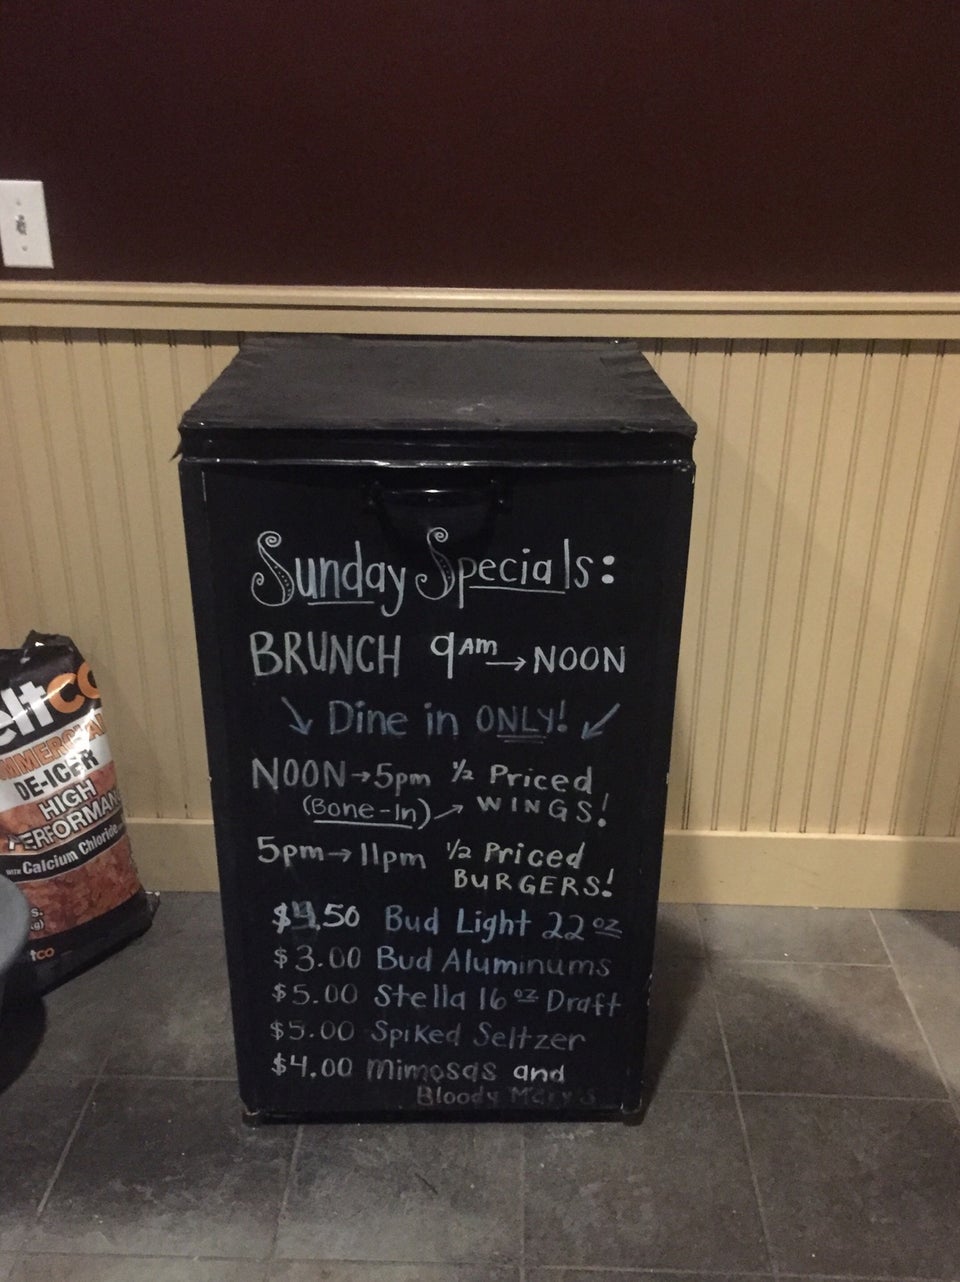 Sunday Specials:
BRUNCH 9AM → NOON
↘ Dine in ONLY! ↙
NOON → 5pm ½ Priced
(Bone-In) → WINGS!
5pm → 11pm ½ Priced
BURGERS!
$4.50 Bud Light 22 oz
$3.00 Bud Aluminums
$5.00 Stella 16 oz Draft
$5.00 Spiked Seltzer
$4.00 Mimosas and
Bloody Mary's
eltco
MMERCIAL
DE-ICER
HIGH
PERFORMAN
WITH Calcium Chloride